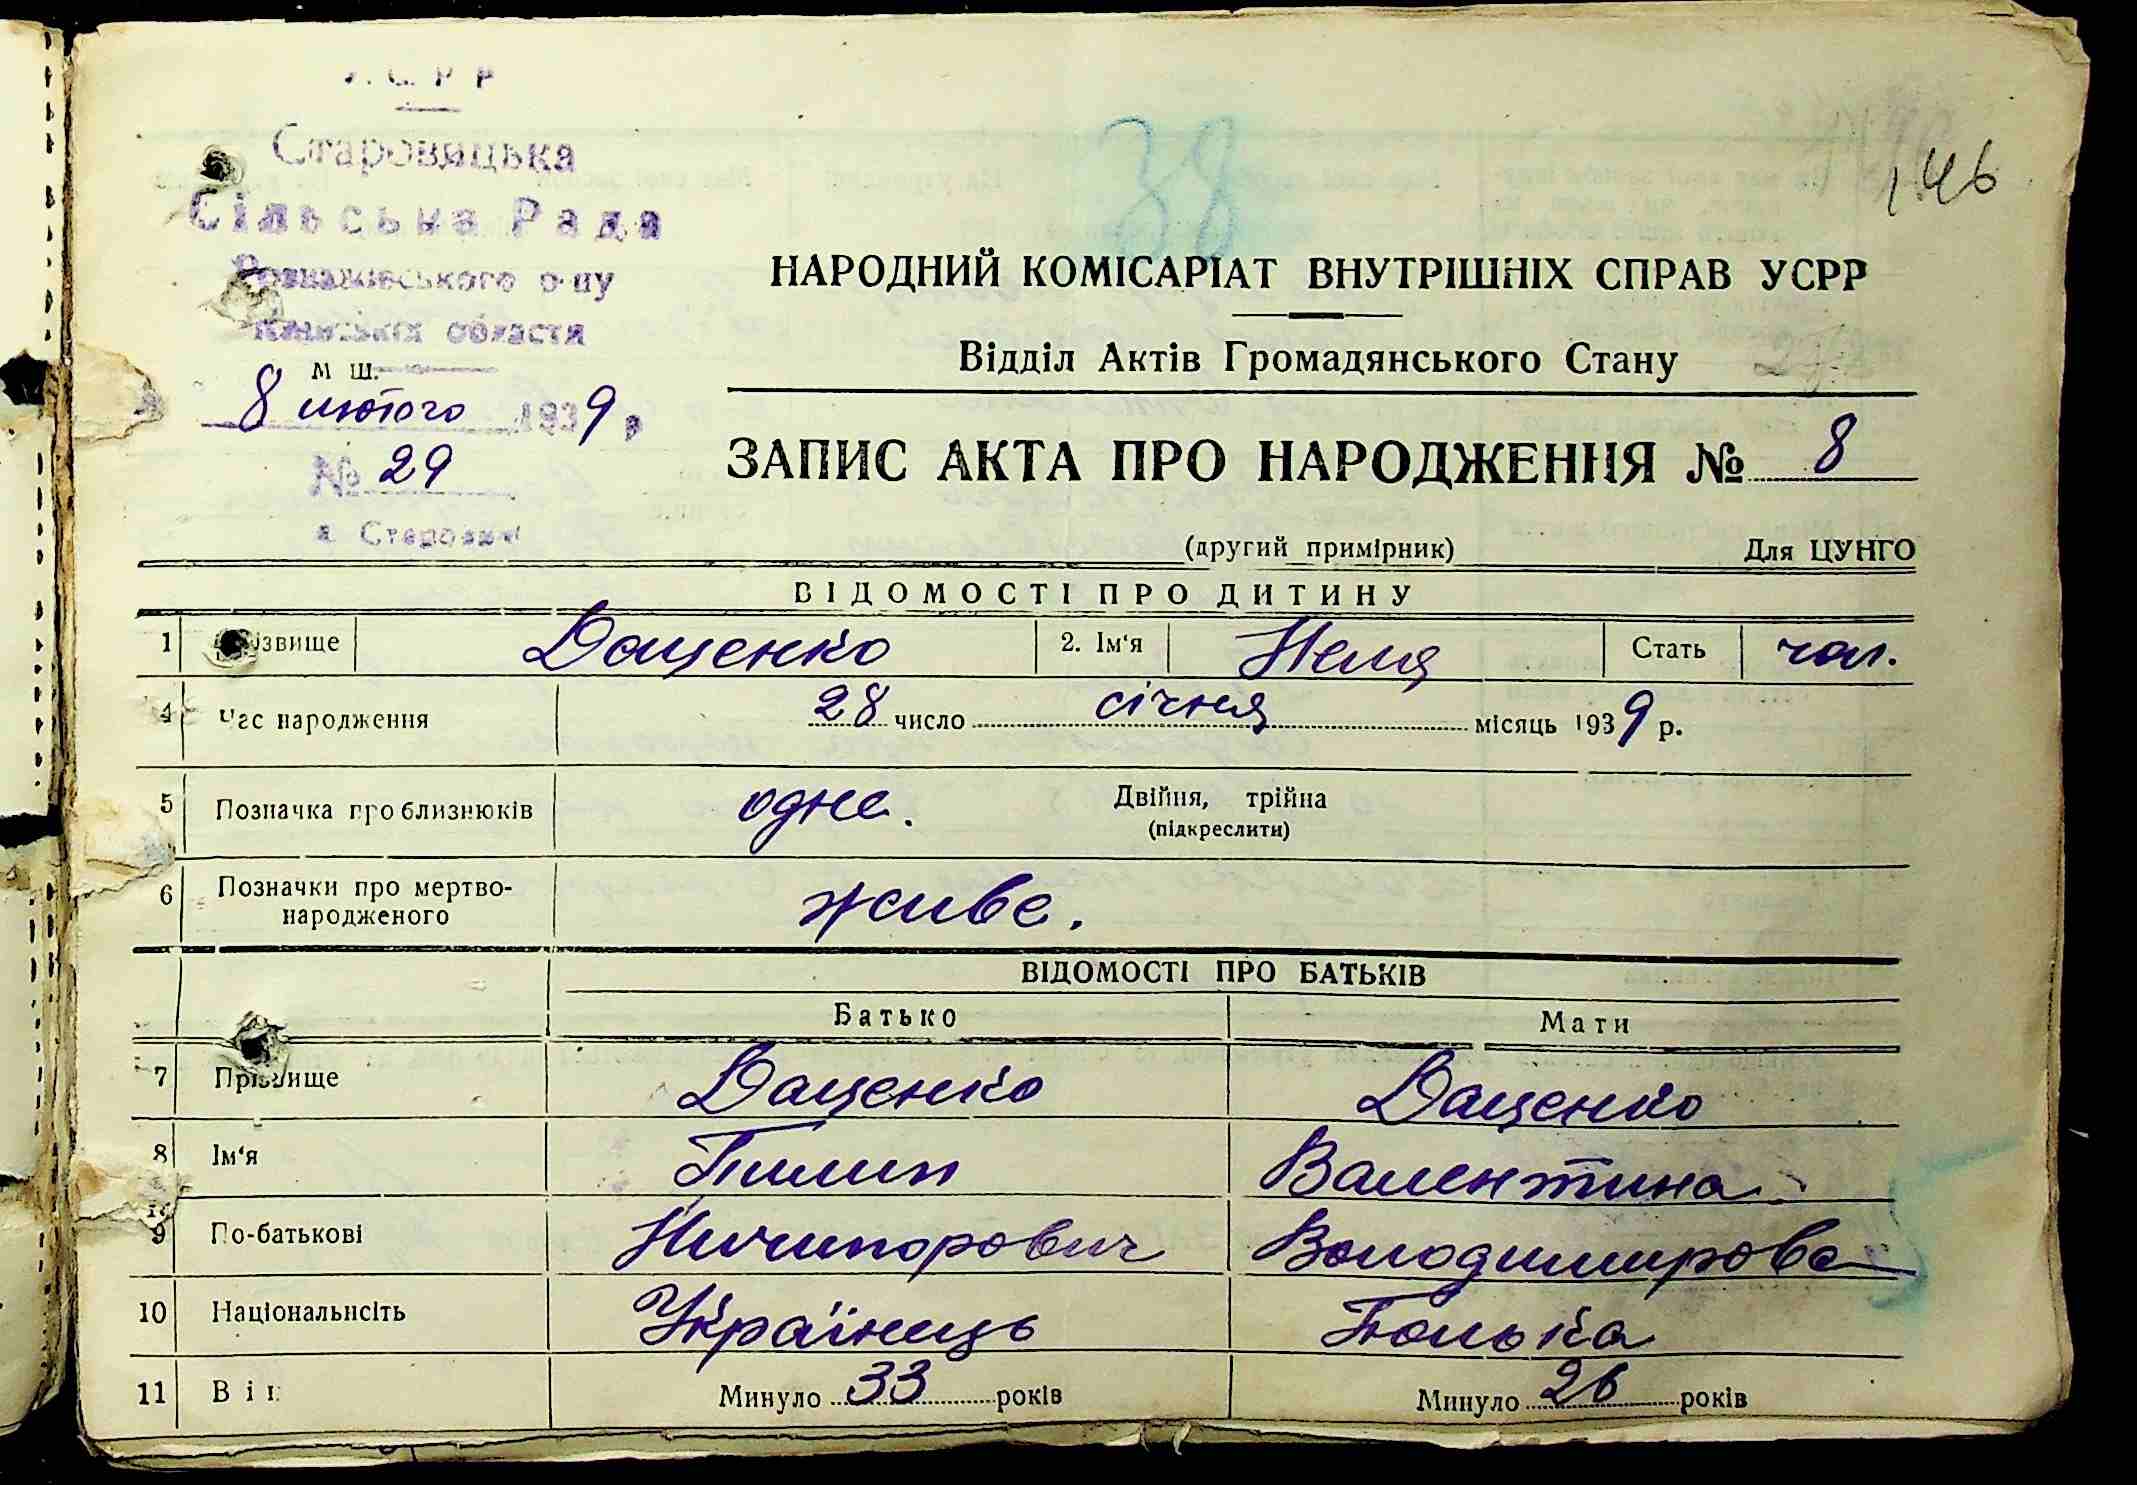 У.С.Р.Р
Старовицька
Сільська Рада
Розважівського р-ну
Київської области
М Ш.
8 лютого 1939 р
№ 29
с. Старовичі
38
146
НАРОДНИЙ КОМІСАРІАТ ВНУТРІШНІХ СПРАВ УСРР
Відділ Актів Громадянського Стану
ЗАПИС АКТА ПРО НАРОДЖЕННЯ № 8
(другий примірник) Для ЦУНГО
ВІДОМОСТІ ПРО ДИТИНУ
1 Прізвище Даценко 2. Ім‘я Неля Стать чол.
4 Час народження 28 число січня місяць 1939 р.
5 Позначка про близнюків одне. Двійня, трійна
(підкреслити)
6 Позначки про мертво-
народженого живе.
ВІДОМОСТІ ПРО БАТЬКІВ
Батько Мати
7 Прізвище Даценко Даценко
8 Ім‘я Пилип Валентина
9 По-батькові Ничипорович Володимирова
10 Національнсіть Українець Полька
11 Вік Минуло 33 років Минуло 26 років